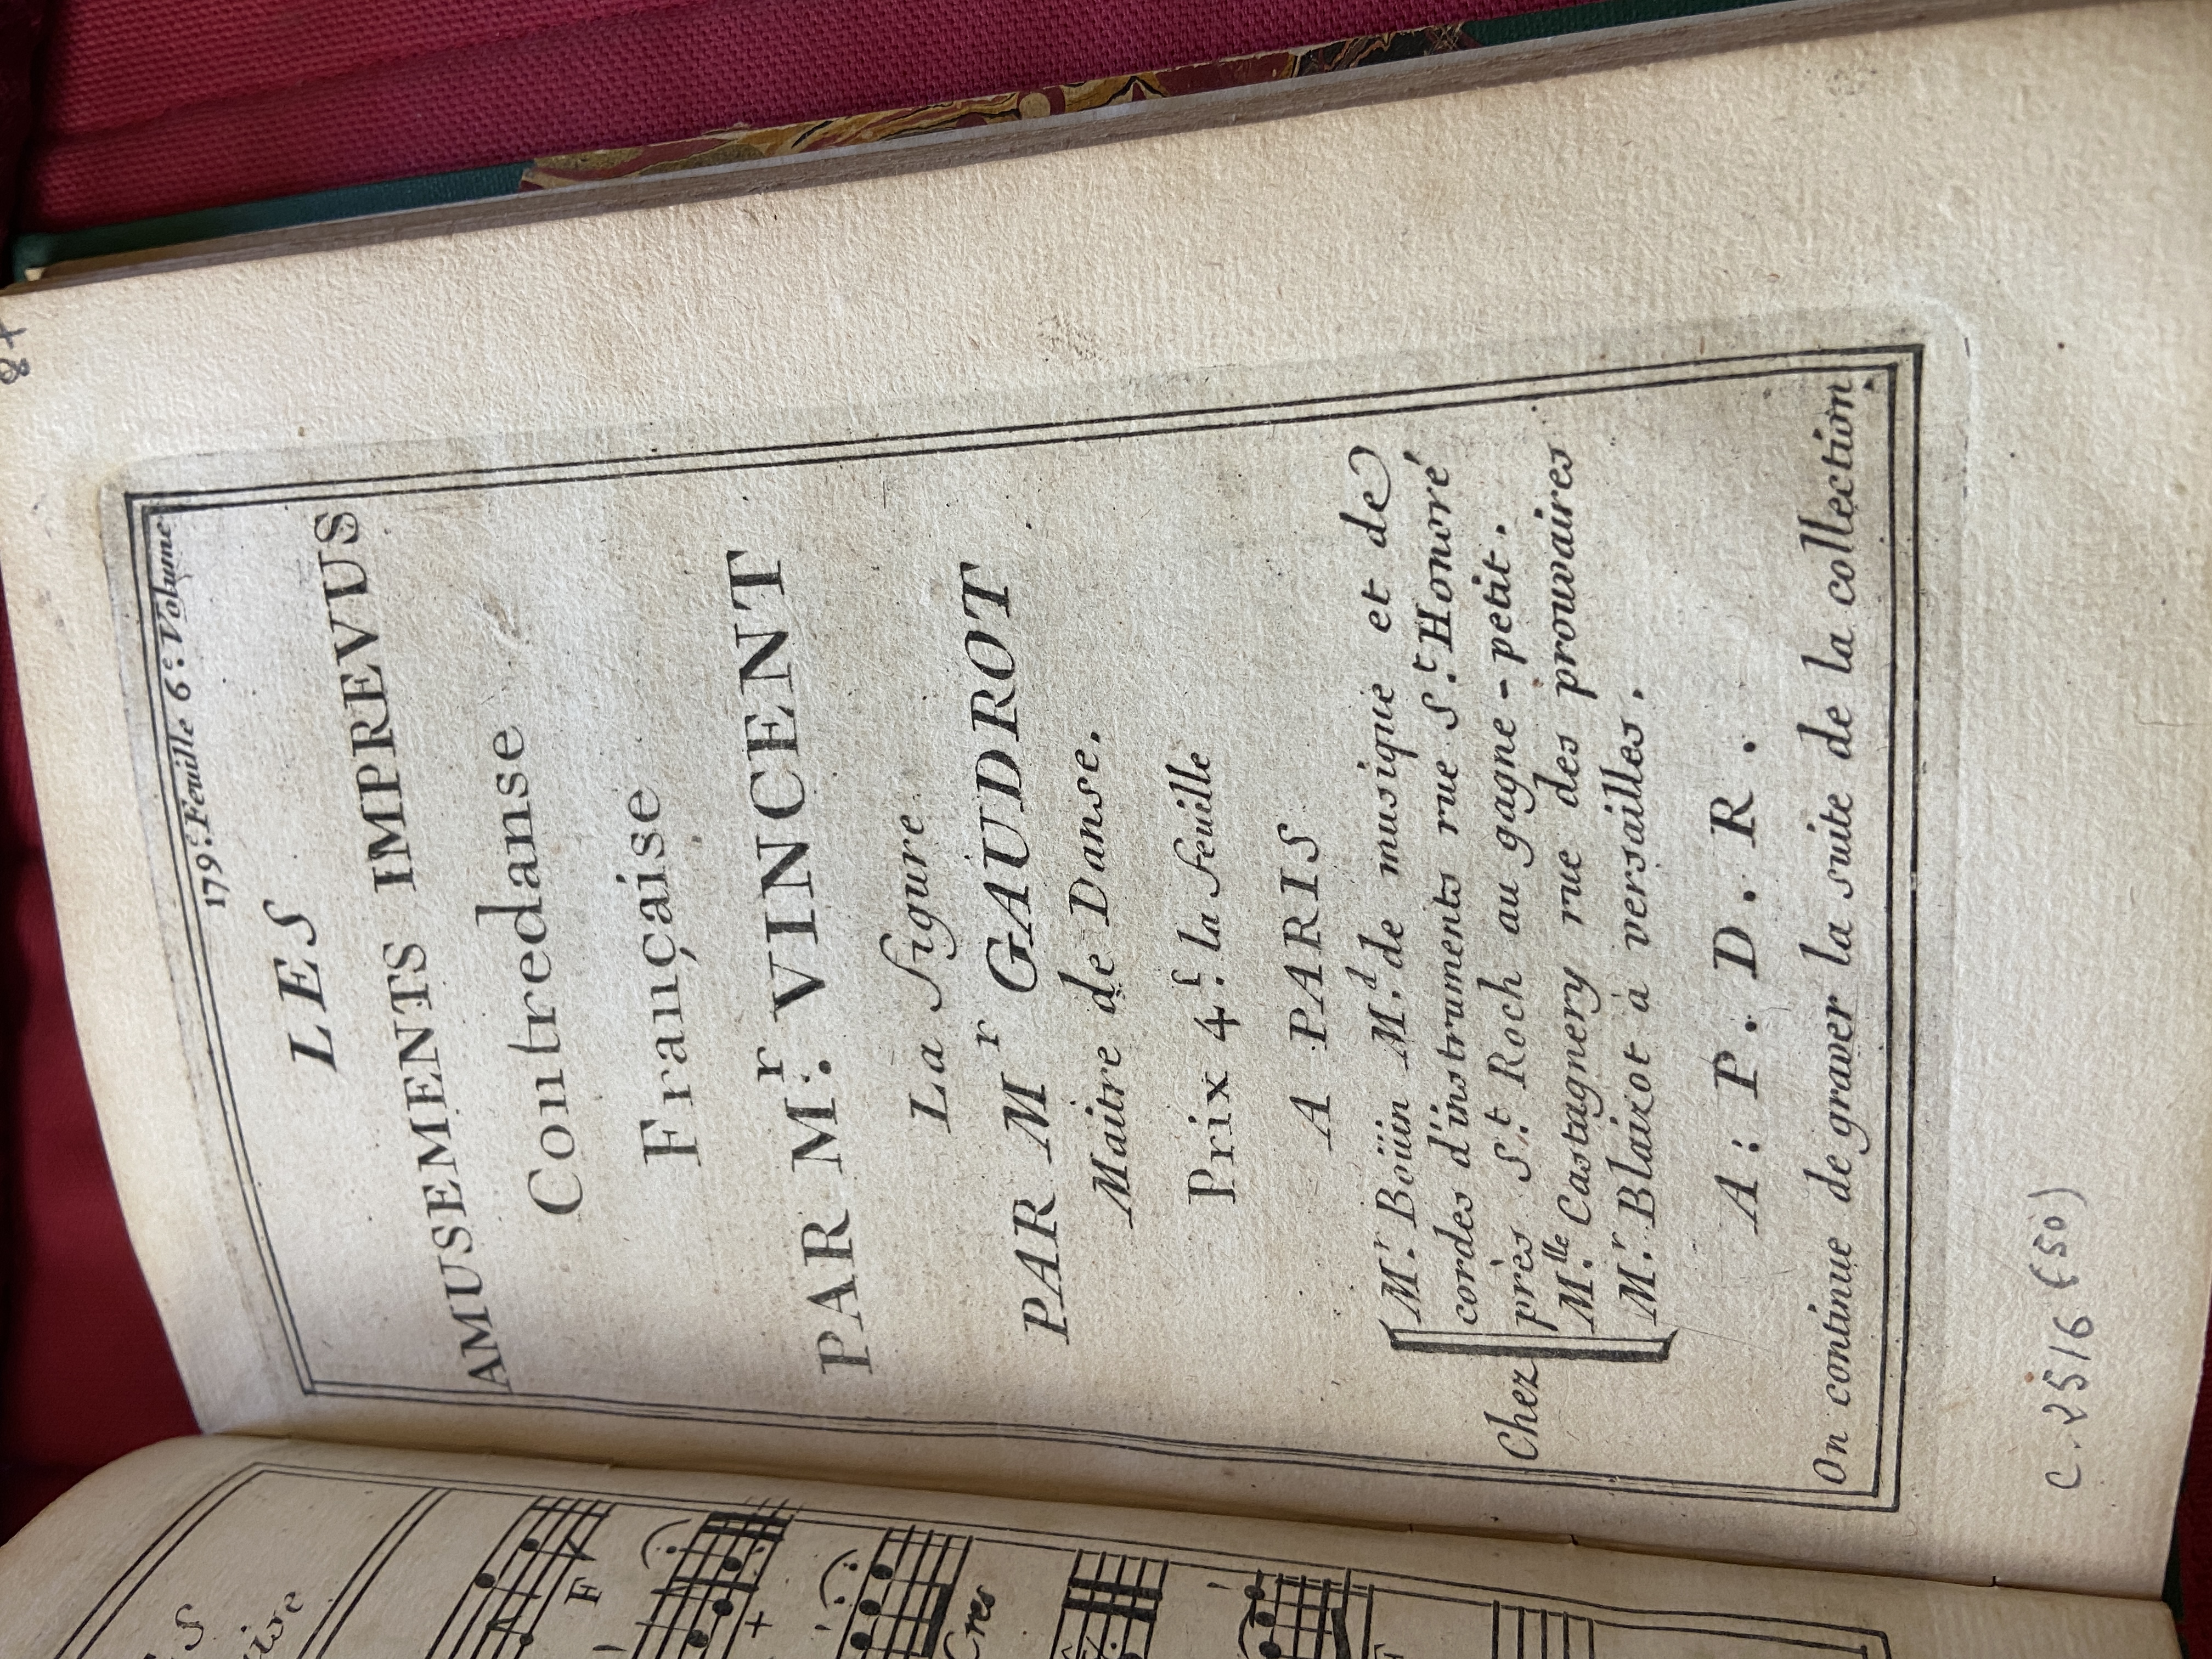 179.e Feuille 6.e Volume
LES
AMUSEMENTS IMPREVUS
Contredanse
Française
PAR M.r VINCENT
La Figure
PAR Mr GAUDROT
Maitre de Danse.
Prix 4.s la feuille
A PARIS
Chez
M.r Boüin M.d de musique et de
cordes d'instruments rue S.t Honoré
près S.t Roch au gagne-petit.
M.lle Castagnery rue des prouvaires
M.r Blaizot à versailles.
A: P. D. R.
On continue de graver la suite de la collection.
C. 2516 (50)
F
Cres
F